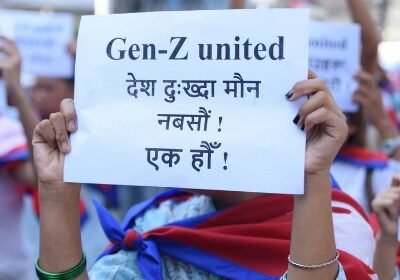 Gen-Z united
देश दुःख्दा मौन
नबसौं !
एक हौँ !
united